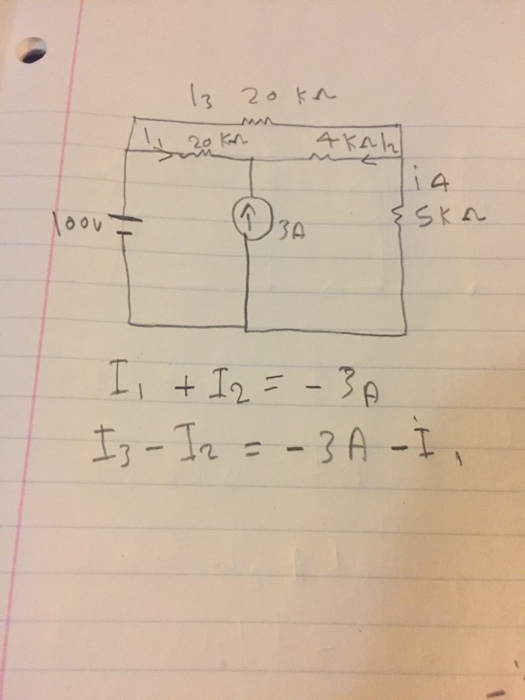 I3 20 KΩ
I1 20 KΩ 4 KΩ I2
i4
100V 5KΩ
3A
I1 + I2 = - 3A
I3 - I2 = - 3A - I1